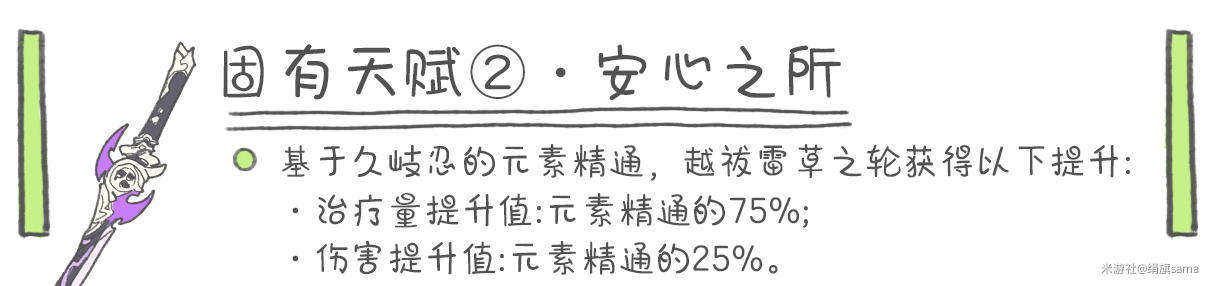 固有天赋②·安心之所
基于久岐忍的元素精通，越祓雷草之轮获得以下提升:
·治疗量提升值:元素精通的75%;
·伤害提升值:元素精通的25%。
米游社@绢旗sama